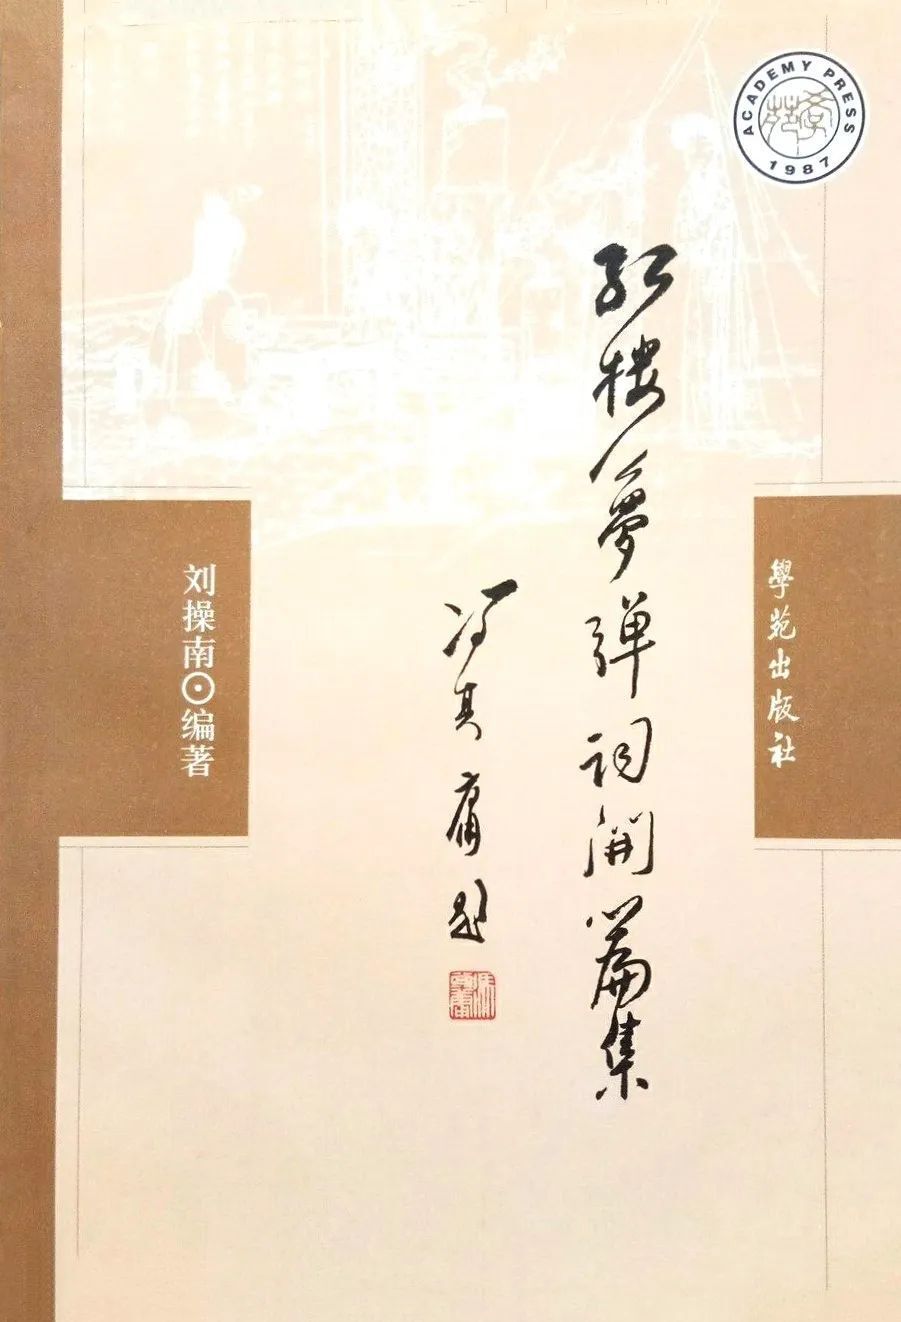 ACADEMY PRESS
1987
红楼夢弹词開篇集
冯其庸题
學苑出版社
刘操南⊙编著